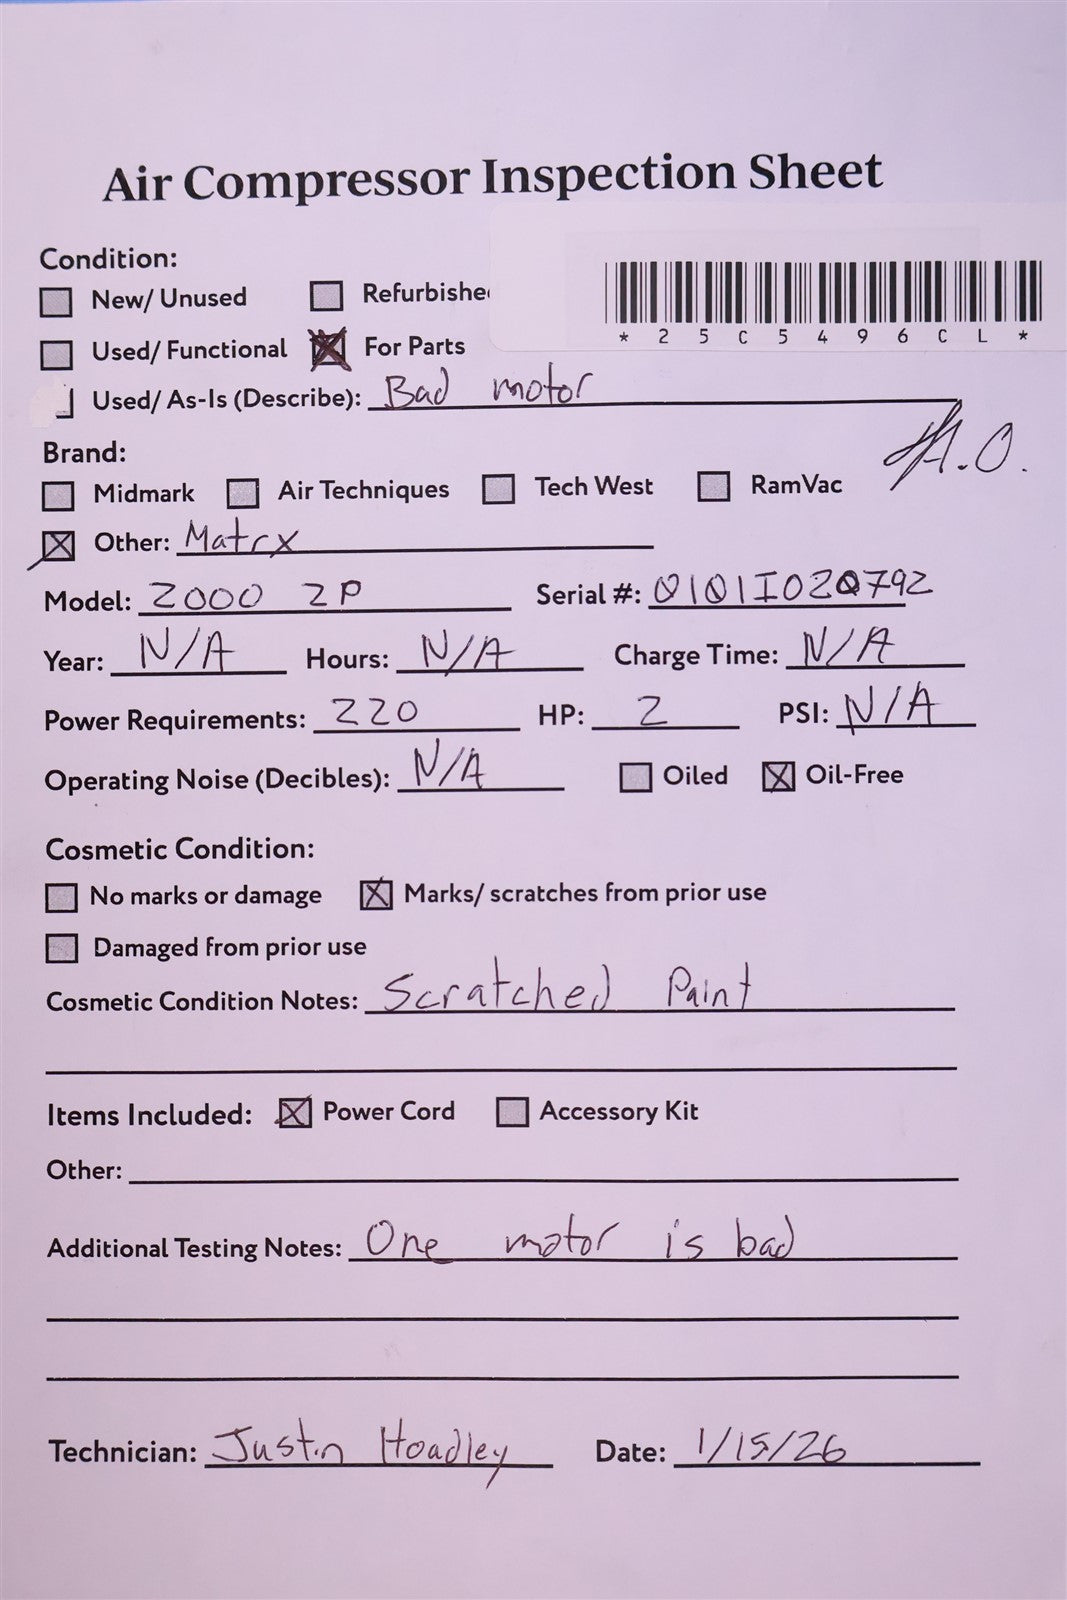 Air Compressor Inspection Sheet
Condition:
New/ Unused Refurbishe
*25C5496CL*
Used/ Functional For Parts
Used/ As-Is (Describe): Bad motor
H.O.
Brand:
Midmark Air Techniques Tech West RamVac
Other: Matrx
Model: 2000 2P Serial #: 0101I020792
Year: N/A Hours: N/A Charge Time: N/A
Power Requirements: 220 HP: 2 PSI: N/A
Operating Noise (Decibles): N/A Oiled Oil-Free
Cosmetic Condition:
No marks or damage Marks/ scratches from prior use
Damaged from prior use
Cosmetic Condition Notes: Scratched Paint
Items Included: Power Cord Accessory Kit
Other:
Additional Testing Notes: One motor is bad
Technician: Justin Hoadley Date: 1/15/26